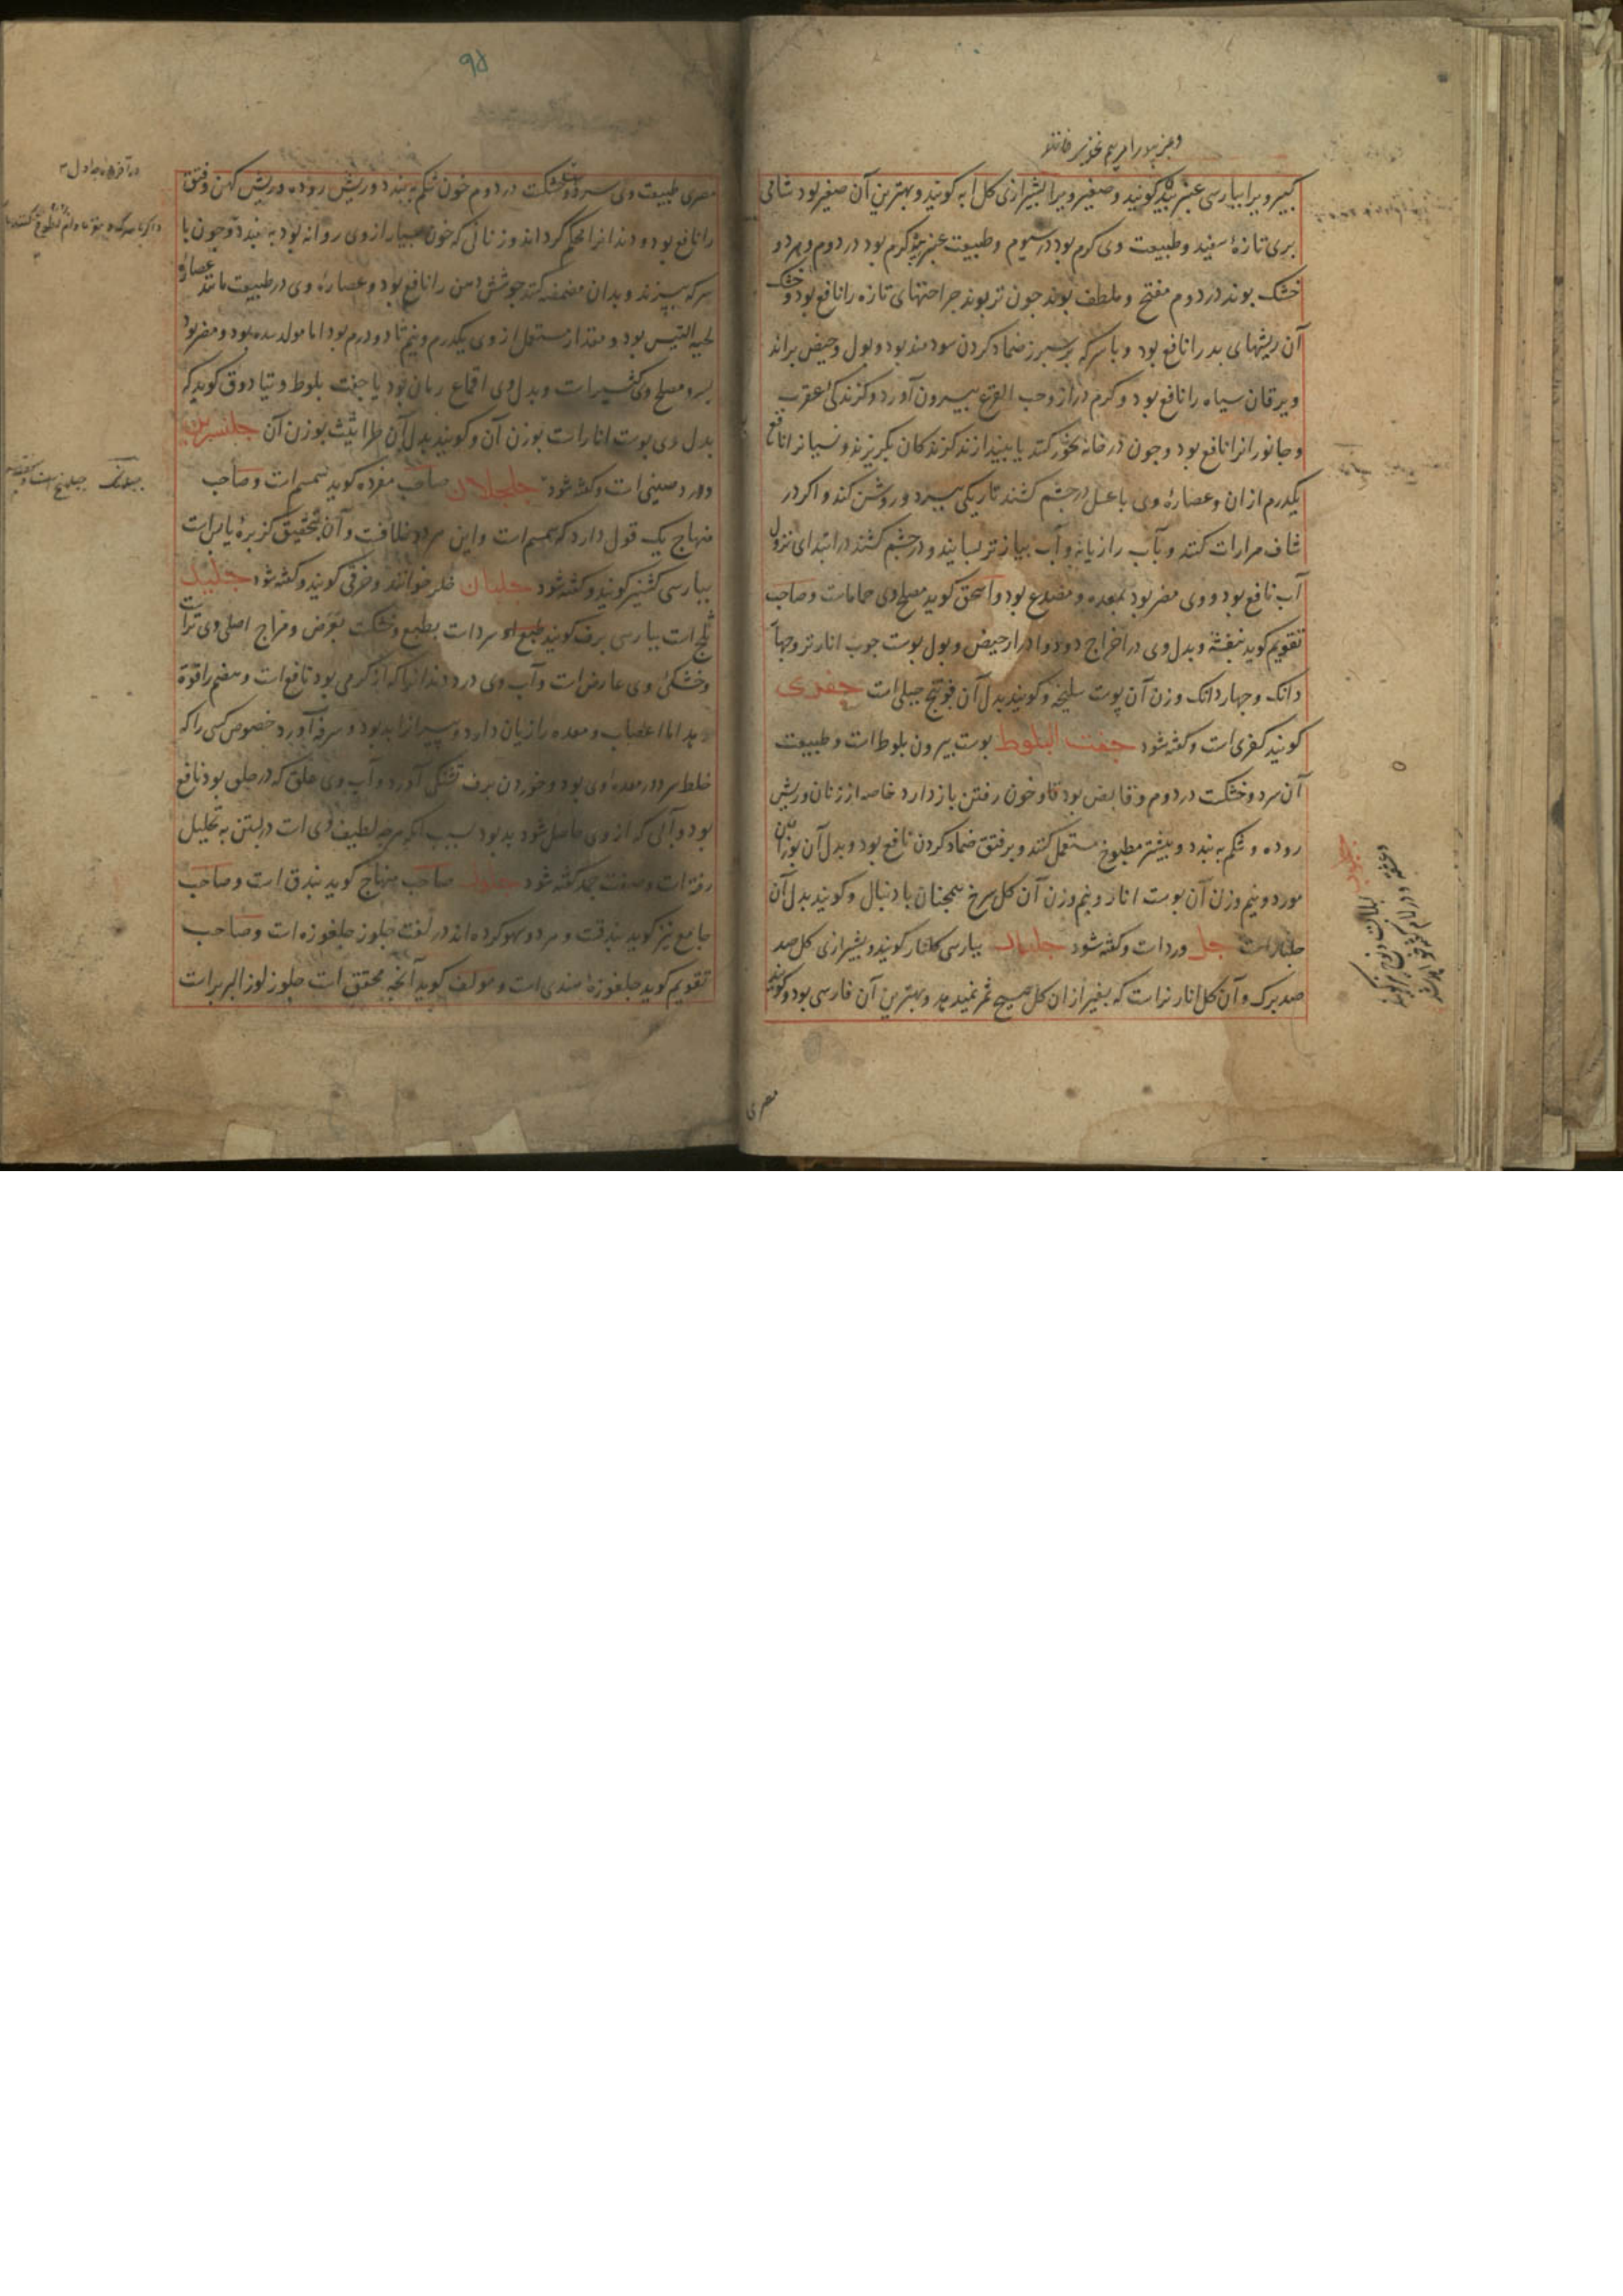 کبیر ویرا بپارسی عنبر بید گویند و صغیر ویرا بشیرازی کل اپه گویند و بهترین آن صغیر بود شامی
بری تازهٔ سفید و طبیعت وی گرم بود در سیوم و طبیعت عنبر بید گرم بود در دوم و هر دو
خشک بوند در دوم مفتح و ملطف بوند چون تر بوند جراحتهای تازه را نافع بود و خشک
آن ریشهای بد را نافع بود و با سرکه بر سپرز ضماد کردن سودمند بود و بول و حیض براند
و یرقان سیاه را نافع بود و کرم دراز و حب القرع بیرون آورد و گزندگی عقرب
و جانورانرا نافع بود و چون در خانه بخور کنند یا بیندازند گزندگان بگریزند و نسیانرا نافع
یکدرم از ان و عصارهٔ وی با عسل در چشم کشند تاریکی ببرد و روشن کند و اگر در
شاف مرارات کنند و بآب رازیانه و آب پیاز تر بسایند و در چشم کشند در ابتدای نزول
آب نافع بود و وی مضر بود بمعده و مصدع بود و اسحق گوید مصلح وی حماماست و صاحب
تقویم گوید بنفشه و بدل وی در اخراج دود و ادرار حیض و بول پوست چوب انار تر و چهار
دانک و چهار دانک وزن آن پوست سلیخه و گویند بدل آن فوتنج جبلی است جفری
گویند کفری است و گفته شود جفت البلوط پوست بیرون بلوط است و طبیعت
آن سرد و خشکست در دوم و قابض بود و خون رفتن باز دارد خاصه از زنان و ریش
روده و شکم به بندد و بیشتر مطبوخ مستعمل کنند و بر فتق ضماد کردن نافع بود و بدل آن بوزن آن
مورد و نیم وزن آن پوست انار و نیم وزن آن گل سرخ همچنان با دنبال و گویند بدل آن
جلنارست جل ورد است و گفته شود جلنار بپارسی گلنار گویند و بشیرازی گل صد
صد برک و آن گل انار نر است که بغیر از ان گل هیچ ثمر نمیدهد و بهترین آن فارسی بود و گویند
مصری
۹۵
مصری طبیعت وی سرد و خشکست در دوم خون شکم به بندد و ریش روده و ریش کهن و فتق
را نافع بود و دندانرا محکم گرداند و زنانی که خون بسیار از وی روانه بود به بندد و چون با
سرکه بپزند و بدان مضمضه کنند جوشش دهن را نافع بود و عصارهٔ وی در طبیعت مانند عصارهٔ
لحیة التیس بود و مقدار مستعمل از وی یکدرم و نیم تا دو درم بود اما مولد سده بود و مضر بود
بسر و مصلح وی کثیراست و بدل وی اقماع رمان بود یا جفت بلوط و تیادوق گوید که
بدل وی پوست انارست بوزن آن و گویند بدل آن طراثیث بوزن آن جلنسرین
ورد صینی است و گفته شود جلجلان صاحب مفرده گوید سمسم است و صاحب
منهاج یک قول دارد که سمسم است و این هر دو خلافست و آن بتحقیق کزبرهٔ یابس است
بپارسی کشنیز گویند و گفته شود جلبان خلر خوانند و خرفی گویند و گفته شود جلید
ثلج است بپارسی برف گویند طبیعت او سردست بطبع و خشکست بعرض و مزاج اصلی وی ترست
و خشکی وی عارض است و آب وی درد دندانها که از گرمی بود نافع است و هضم را قوة
دهد اما اعصاب و معده را زیان دارد و پیرانرا بد بود و سرفه آورد خصوص کسی را که
خلط سرد در معده وی بود و خوردن برف تشنگی آورد و آب وی علق که در حلق بود نافع
بود و آبی که از وی حاصل شود بد بود بسبب آنکه هرچه لطیف وی است در بستن به تحلیل
رفته است و صفت جمد گفته شود جلوز صاحب منهاج گوید بندق است و صاحب
جامع نیز گوید بندقست و هر دو سهو کرده اند در لغت جلوز جلغوزه است و صاحب
تقویم گوید جلغوزهٔ هندی است و مولف گوید آنچه محقق است جلوز لوز البربر است